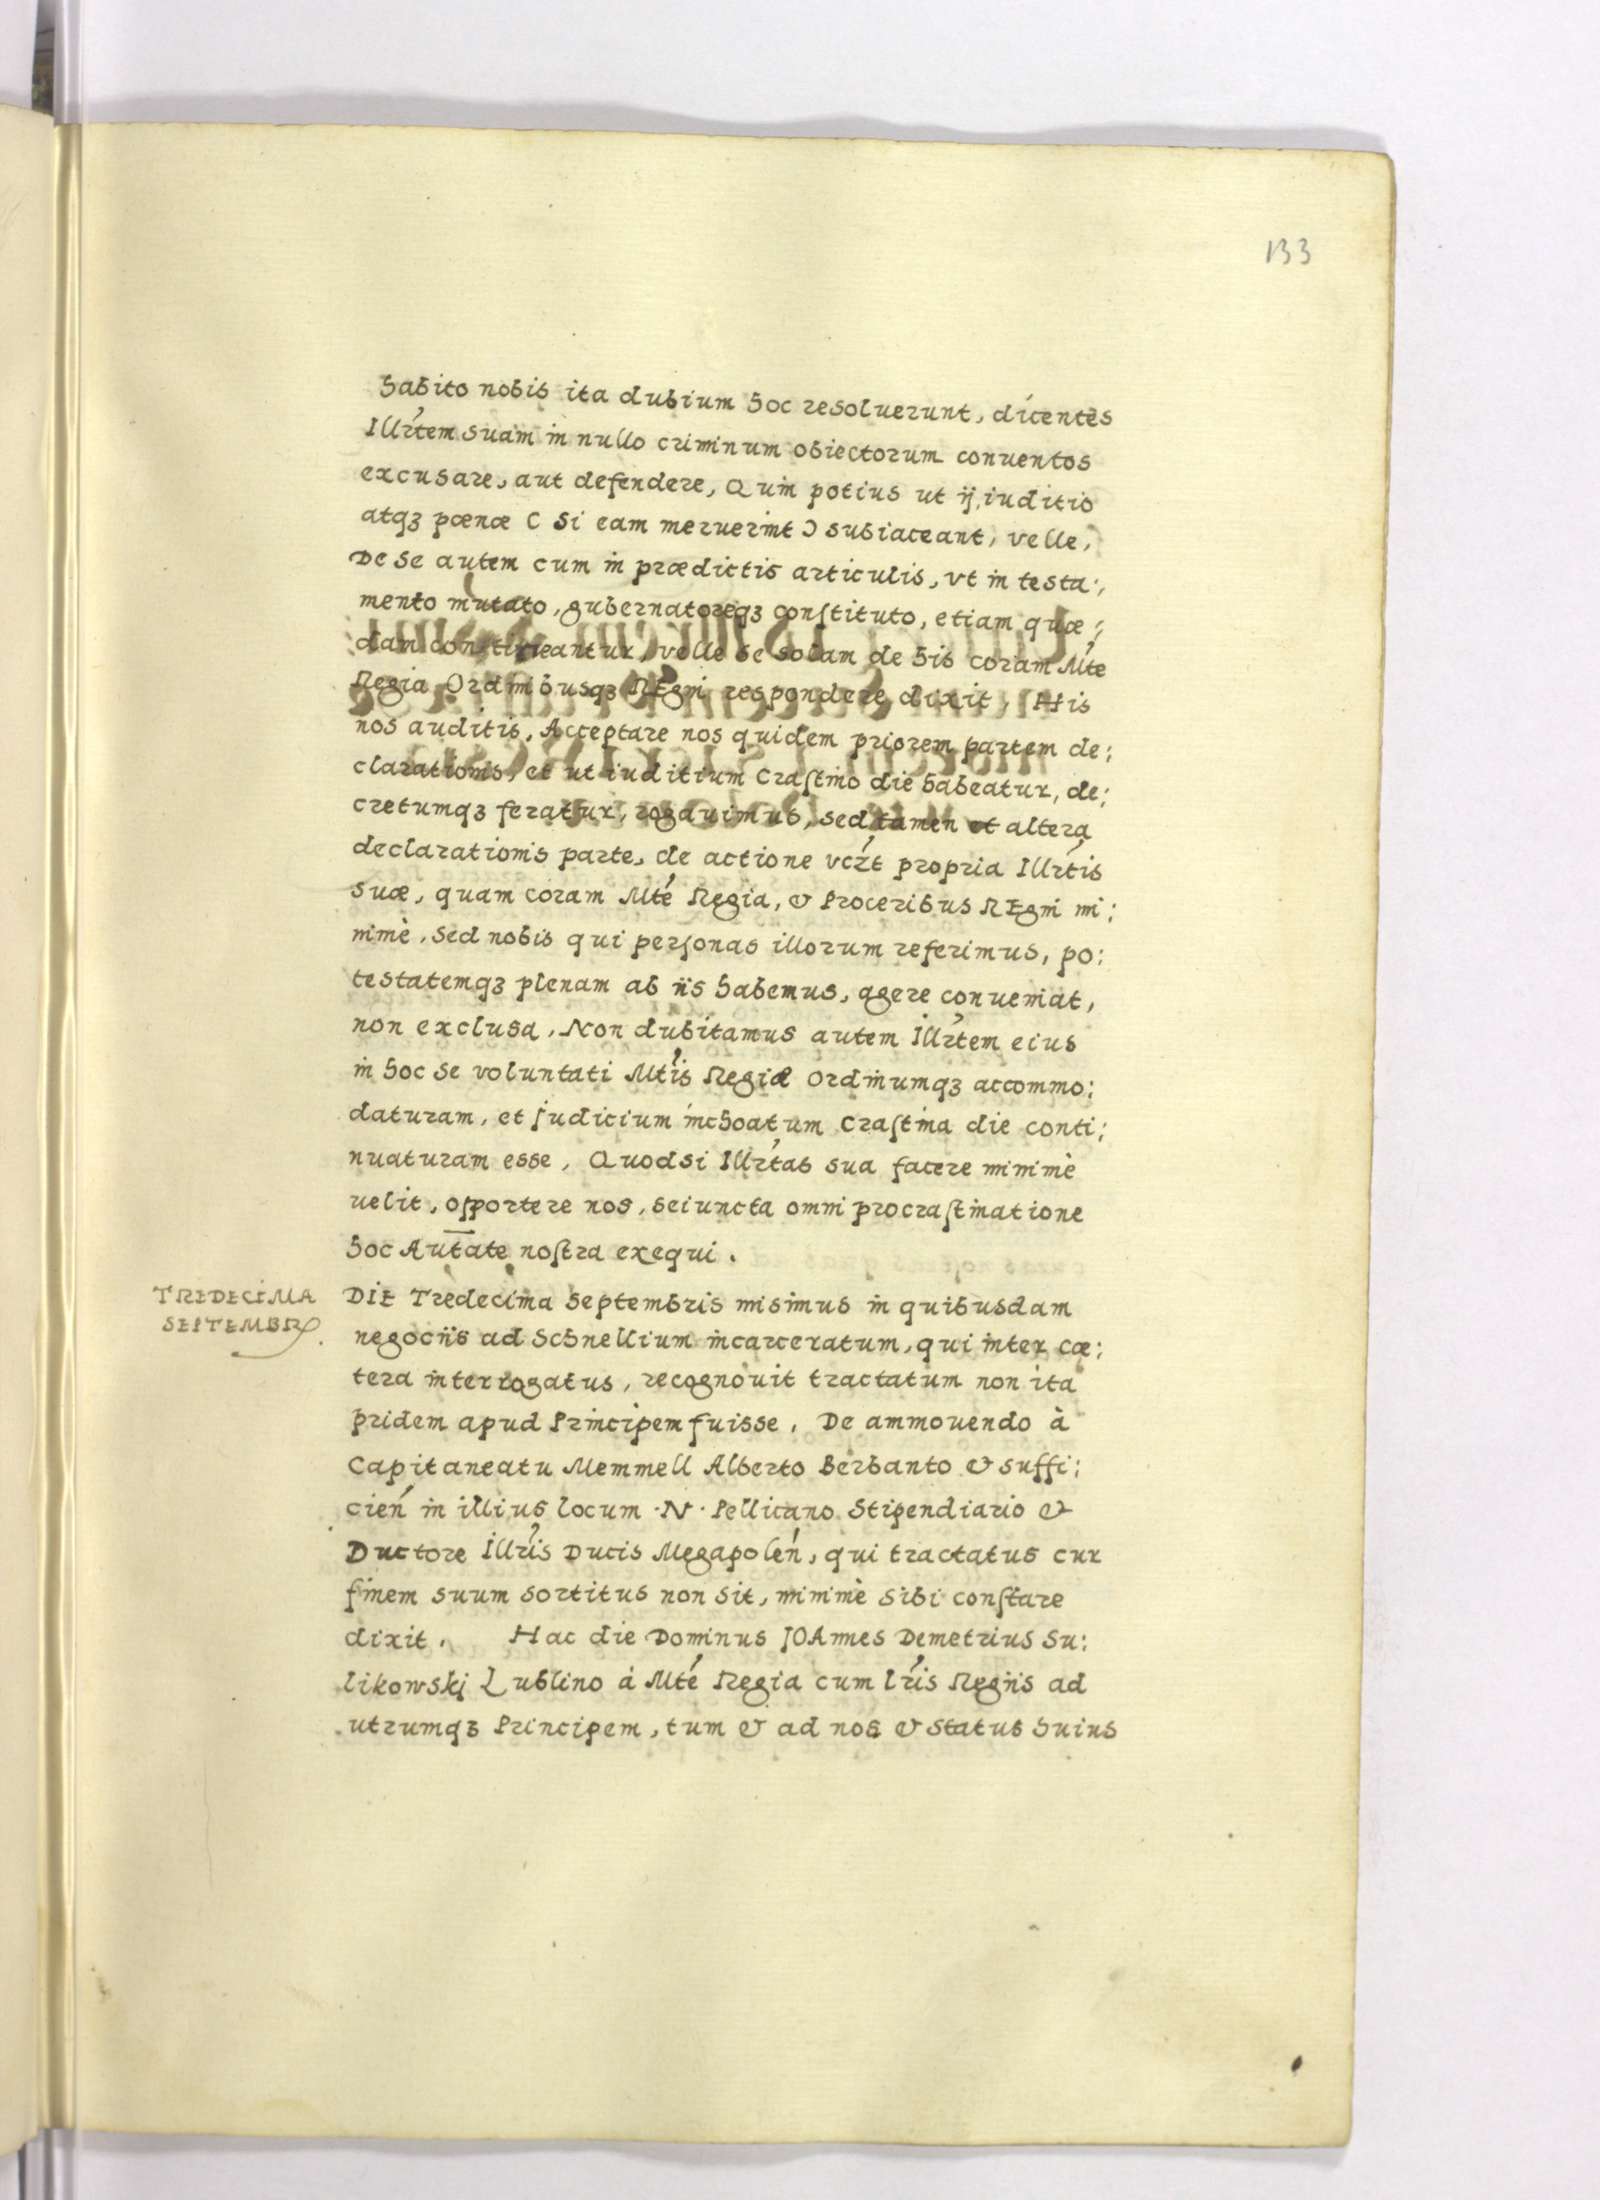 133
habito nobis ita dubium hoc resoluerunt, dicentes
Illr̃tem suam in nullo criminum obiectorum conuentos
excusare, aut defendere, Quin potius ut ij, iuditio
atqꝫ pœnæ ( Si eam meruerint ) subiaceant, velle,
De se autem cum in prædictis articulis, vt in testa:
mento mutato, gubernatoreqꝫ conſtituto, etiam quæ:
dam contineantur, velle se solam de his coram Mte
Regia Ordinibusqꝫ REgni respondere dixit, His
nos auditis, Acceptare nos quidem priorem partem de:
clarationis, et ut iuditium Craſtino die habeatur, de:
cretumqꝫ feratur, rogauimus, sed tamen et altera
declarationis parte, de actione vcz̃t propria Illrtis
suæ, quam coram Mté Regia, & Proceribus REgni mi:
nimè, sed nobis qui perſonas illorum referimus, po:
testatemqꝫ plenam ab iis habemus, agere conueniat,
non exclusa, Non dubitamus autem Illr̃tem eius
in hoc se voluntati Mtis Regiæ Ordinumqꝫ accommo:
daturam, et Judicium inchoatum Craſtina die conti:
nuaturam esse, Quodsi Illrtas sua facere minimè
uelit, opportere nos, seiuncta omni procraſtinatione
hoc Autate noſtra exequi.
TREDECIMA
SEPTEMBR
DIE Tredecima Septembris misimus in quibusdam
negociis ad Schnellium incarceratum, qui inter cæ:
tera interrogatus, recognouit tractatum non ita
pridem apud Principem fuisse, De ammouendo à
Capitaneatu Memmell Alberto Berbanto & suffi:
cień in illius locum ·N· Pellicano Stipendiario &
Ductore Illris Ducis Megapoleń, qui tractatus cur
finem suum sortitus non sit, minimè sibi conſtare
dixit. Hac die Dominus JOAnnes Demetrius Su:
likowskj Lublino á Mté Regia cum lris Regiis ad
utrumqꝫ Principem, tum & ad nos & Status huius